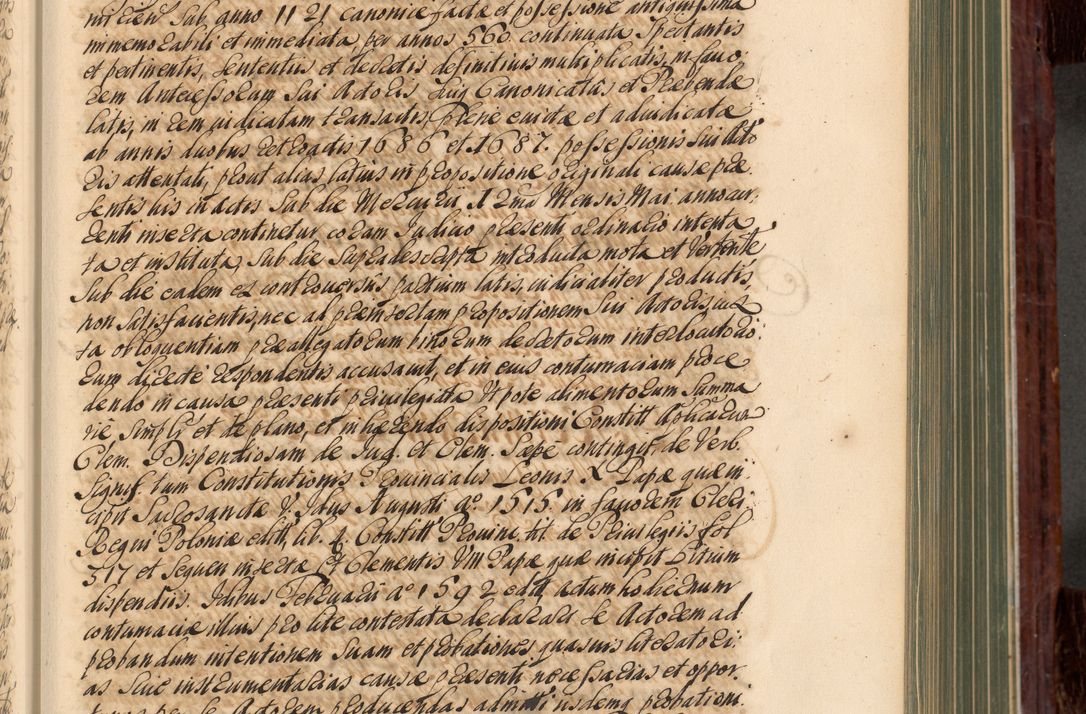 sub anno 1121 canonice factæ et possessione antiquissima
immemorabili et immediata, per annos 560 continuata Spectantis
et pertinentis, sententiis et decretis definitivis multiplicatis, in favo:
rem Antecessorum sui Actoris huius Canonicatus et Præbendæ
latis, in rem iudicatam transactis, plene evictæ et adiudicatæ
ab annis duobus retroactis 1686 et 1687. possessionis sui Acto
ris attentati, prout alias latius in propositione originali causæ præ:
sentis his in actis sub die Mercurii 12ma Mensis Mai anno cur:
renti inserta continetur coram Judicio præsenti ordinario intenta
ta et instituta, sub die supradescripta introducta mota et vertente
sub die eadem ex controversiis partium latis, iudicialiter productis,
non satisfacientis, nec ad præinsertam propositionem sui Actoris iux
ta obloquentiam præallegatorum binorum decretorum interlocutorio:
rum directe respondentis accusavit, et in eius contumaciam proce
dendo in causa præsenti privilegiata Utpote alimentorum summa
rie, simpli et de plano, et inhærendo dispositioni Constitt
Clem. Dispendiosam de Jud. et Clem. Sæpe contingit, de Verb.
Signif. tum Constitutionis Provincialis Leonis X Papæ quæ in:
cipit Sacrosanctæ V. Idus Augusti ao. 1515 in favorem Cleri
Regni Poloniæ edit, lib. 4. Constitt Provinc. tit. de Privilegiis fol
517 et sequen insertæ Et Clementis VIII Papæ quæ incipit Litium
dispendiis. Idibus Februarii ao 1592 edit actum hodiernum
contumaciæ illius pro lite contestata declarari se Actorem ad
probandum intentionem suam et probationes quasvis literatori:
as sive instrumentarias causæ præsenti necessarias et oppor
tunas per se Actorem producendas admitti iisdemq probationi.